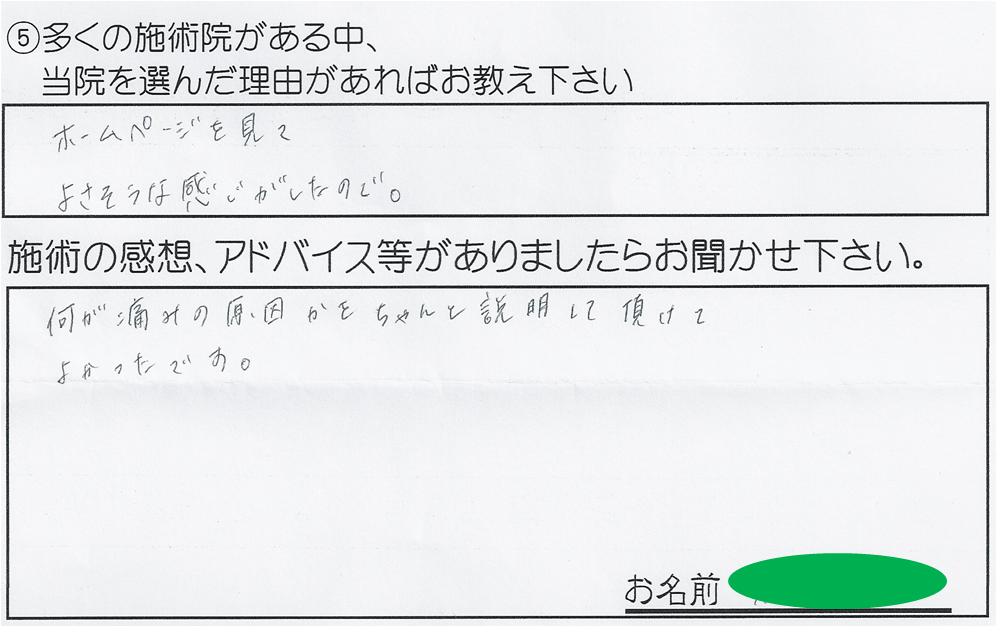 ⑤多くの施術院がある中、
当院を選んだ理由があればお教え下さい
ホームページを見て
よさそうな感じがしたので。
施術の感想、アドバイス等がありましたらお聞かせ下さい。
何が痛みの原因かをちゃんと説明して頂けて
よかったです。
お名前